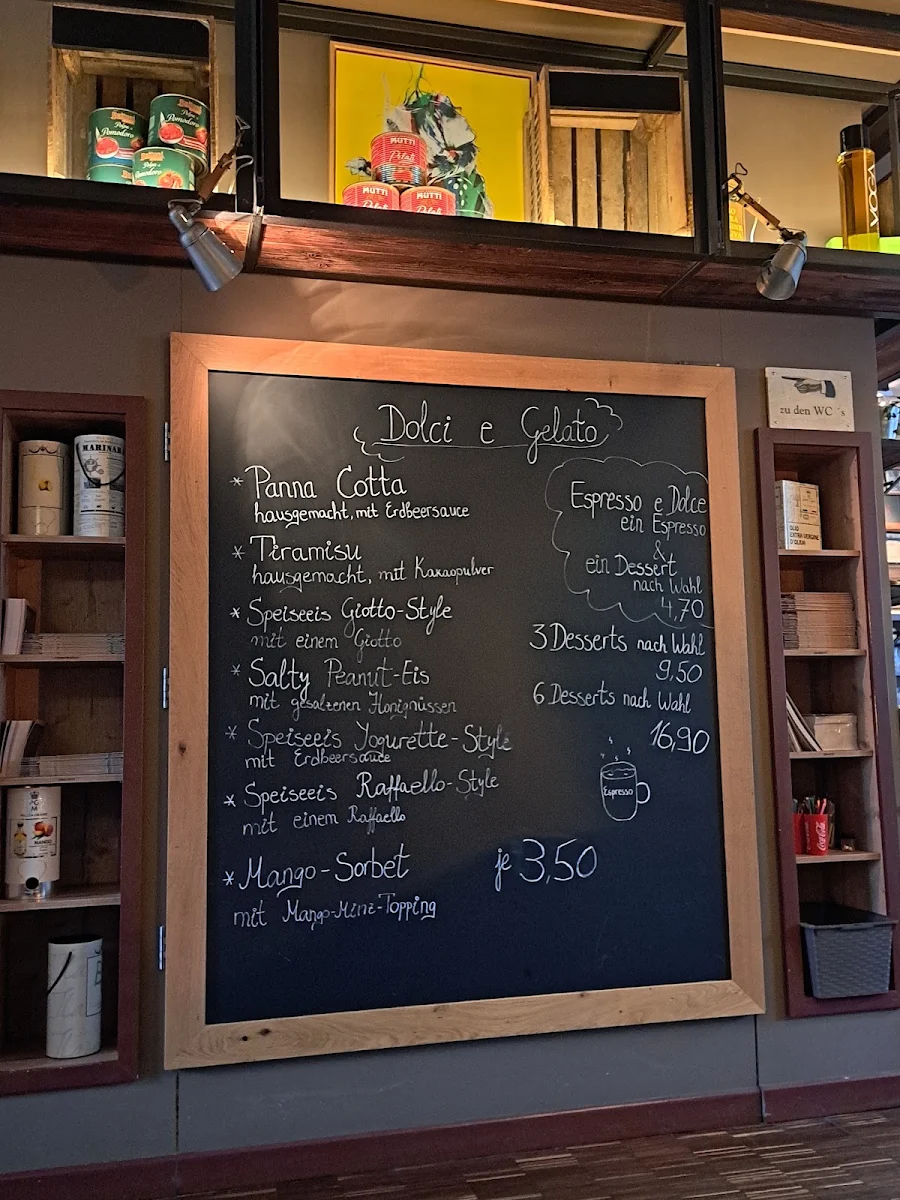 Pomodoro
Polpa di
Pomodoro
MUTTI
Pelati
MUTTI
MUTTI
VOCA
zu den WC´s
MARINARA
Dolci e Gelato
* Panna Cotta
hausgemacht, mit Erdbeersauce
* Tiramisu
hausgemacht, mit Kakaopulver
* Speiseeis Giotto-Style
mit einem Giotto
* Salty Peanut-Eis
mit gesalzenen Honignüssen
* Speiseeis Yogurette-Style
mit Erdbeersauce
* Speiseeis Raffaello-Style
mit einem Raffaello
* Mango-Sorbet
mit Mango-Minz-Topping
je 3,50
Espresso e Dolce
ein Espresso
&
ein Dessert
nach Wahl
4,70
3 Desserts nach Wahl
9,50
6 Desserts nach Wahl
16,90
Espresso
OLIO
EXTRA VERGINE
D'OLIVA
Coca-Cola